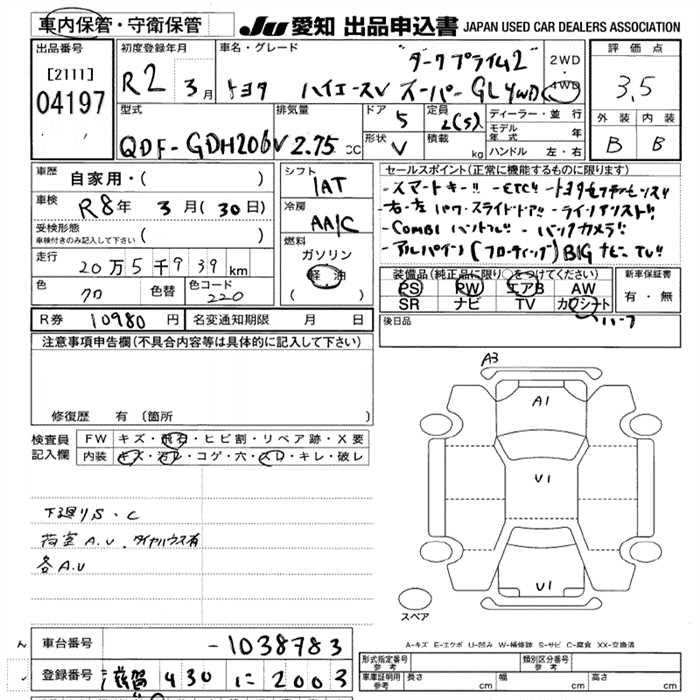 車内保管・守衛保管
JU 愛知 出品申込書 JAPAN USED CAR DEALERS ASSOCIATION
出品番号
[2111]
04197
初度登録年月
R2 3月
車名・グレード
"ダークプライム2"
トヨタ ハイエースV スーパーGL 4WD
2WD
4WD
評価点
3.5
外装 内装
B B
型式
QDF-GDH206V
排気量
2.75 CC
ドア
5
形状
V
定員
2(5)
積載
kg
ディーラー・並行
モデル年式 年
ハンドル 左・右
車歴
自家用・( )
車検
R8年 3月(30日)
受検形態
車検付きのみ記入して下さい ( )
走行
20万5千9 39km
色
クロ
色替
色コード
220
シフト
1AT
冷房
AA/C
燃料
ガソリン
軽油
( )
セールスポイント(正常に機能するものに限ります)
-スマートキー!! -ETC!! -トヨタセーフティーセンス!!
-右・左パワースライドドア!! -ライン
-COMBIハンドル!! -バックカメラ!!
-アルパイン(フローティング)BIGナビ TV!!
装備品(純正品に限り○をつけてください)
PS PW エアB AW
SR ナビ TV カワシート
ハーフ
新車保証書
有・無
後日品
R券 10980円
名変通知期限 月 日
注意事項申告欄(不具合内容等は具体的に記入して下さい)
修復歴 有(箇所
検査員記入欄
FW キズ・飛石・ヒビ割・リペア跡・X要
内装 キズ・汚レ・コゲ・穴・スレ・キレ・破レ
下廻りS・C
荷室A.U.タイヤハウス有
各A.U
A3
A1
U1
U1
スペア
A-キズ E-エクボ U-凹み W-補修跡 S-サビ C-腐食 XX-交換済
車台番号 -1038783
登録番号 滋賀 430 に 2003
形式指定番号 参考
類別区分番号 参考
車庫証明用参考 長さ cm 幅 cm 高さ cm